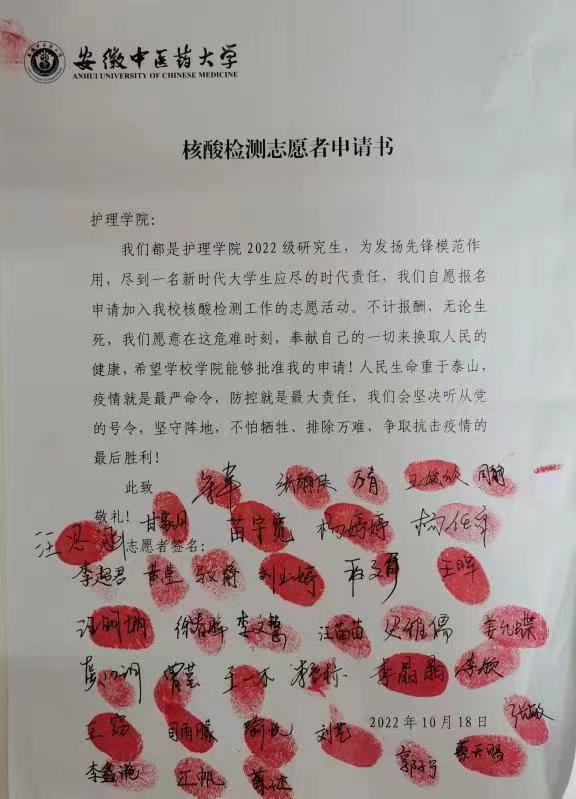 安徽中医药大学
ANHUI UNIVERSITY OF CHINESE MEDICINE
核酸检测志愿者申请书
护理学院：
我们都是护理学院 2022 级研究生，为发扬先锋模范作
用，尽到一名新时代大学生应尽的时代责任，我们自愿报名
申请加入我校核酸检测工作的志愿活动。不计报酬，无论生
死，我们愿意在这危难时刻，奉献自己的一切来换取人民的
健康，希望学校学院能够批准我的申请！人民生命重于泰山，
疫情就是最严命令，防控就是最大责任，我们会坚决听从党
的号令，坚守阵地，不怕牺牲、排除万难，争取抗击疫情的
最后胜利！
此致 万青
敬礼！ 苗宇宽 杨婷婷
志愿者签名：
李超君 王晖
徐春峰 李文慧 汪苗苗
王一木 李晶晶 李敏
刘艺 2022 年 10 月 18 日 张敏
江帆 蔡天赐